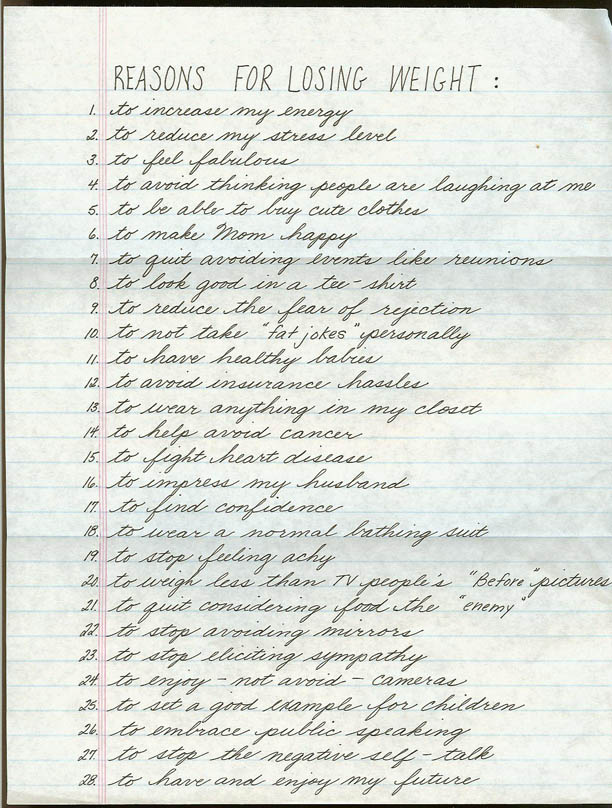 REASONS FOR LOSING WEIGHT:
1. to increase my energy
2. to reduce my stress level
3. to feel fabulous
4. to avoid thinking people are laughing at me
5. to be able to buy cute clothes
6. to make Mom happy
7. to quit avoiding events like reunions
8. to look good in a tee-shirt
9. to reduce the fear of rejection
10. to not take "fat jokes" personally
11. to have healthy babies
12. to avoid insurance hassles
13. to wear anything in my closet
14. to help avoid cancer
15. to fight heart disease
16. to impress my husband
17. to find confidence
18. to wear a normal bathing suit
19. to stop feeling achy
20. to weigh less than TV people's "Before" pictures
21. to quit considering food the "enemy"
22. to stop avoiding mirrors
23. to stop eliciting sympathy
24. to enjoy - not avoid - cameras
25. to set a good example for children
26. to embrace public speaking
27. to stop the negative self-talk
28. to have and enjoy my future